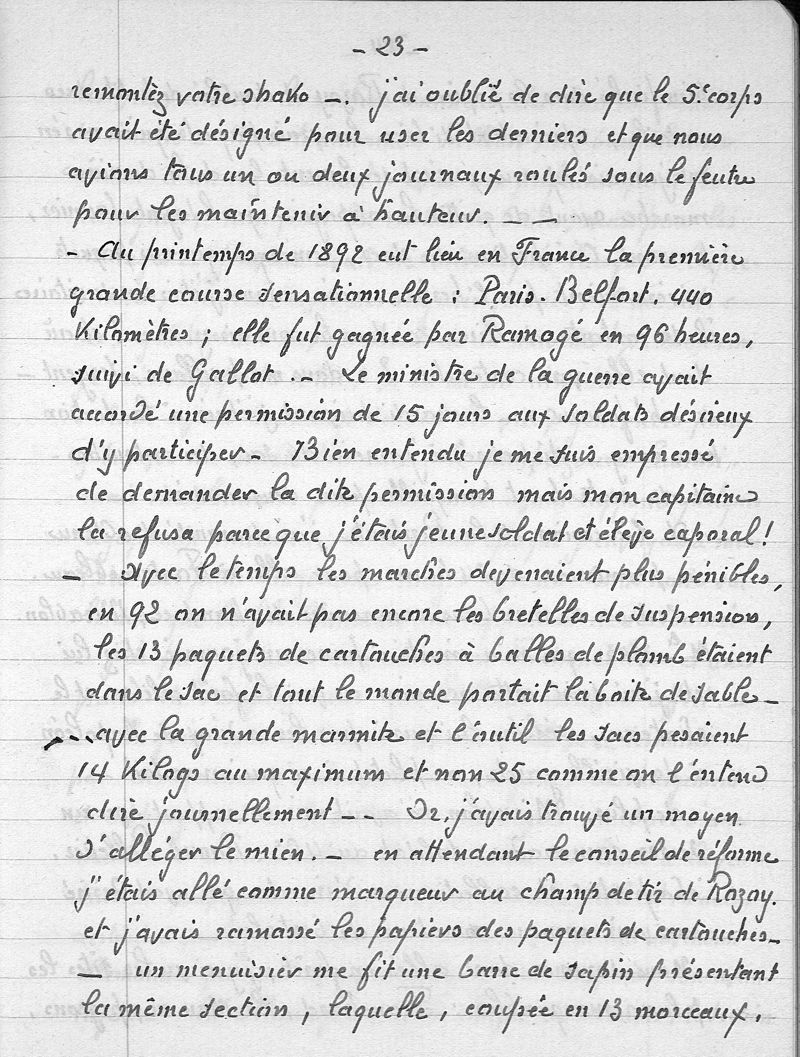 - 23 -
remontèz votre shako -. j'ai oublié de dire que le 5.e corps
avait été désigné pour user les derniers et que nous
avions tous un ou deux journaux roulés sous le feutre
pour les maintenir à hauteur. - -
- Au printemps de 1892 eut lieu en France la première
grande course sensationnelle : Paris. Belfort. 440
Kilomètres ; elle fut gagnée par Ramogé en 96 heures,
suivi de Gallot . - Le ministre de la guerre avait
accordé une permission de 15 jours aux soldats désireux
d'y participer - Bien entendu je me suis empressé
de demander la dite permission mais mon capitaine
la refusa parce que j'étais jeune soldat et élève caporal !
- Avec le temps les marches devenaient plus pénibles,
en 92 on n'avait pas encore les bretelles de suspension,
les 13 paquets de cartouches à balles de plomb étaient
dans le sac et tout le monde portait la boite de sable -
- - - avec la grande marmite et l'outil les sacs pesaient
14 Kilogs au maximum et non 25 comme on l'entend
dire journellement - - Or, j'avais trouvé un moyen
d'alléger le mien. - en attendant le conseil de réforme
j'étais allé comme marqueur au champ de tir de Rozoy.
et j'avais ramassé les papiers des paquets de cartouches -
- un menuisier me fit une barre de sapin présentant
la même section , laquelle , coupée en 13 morceaux.